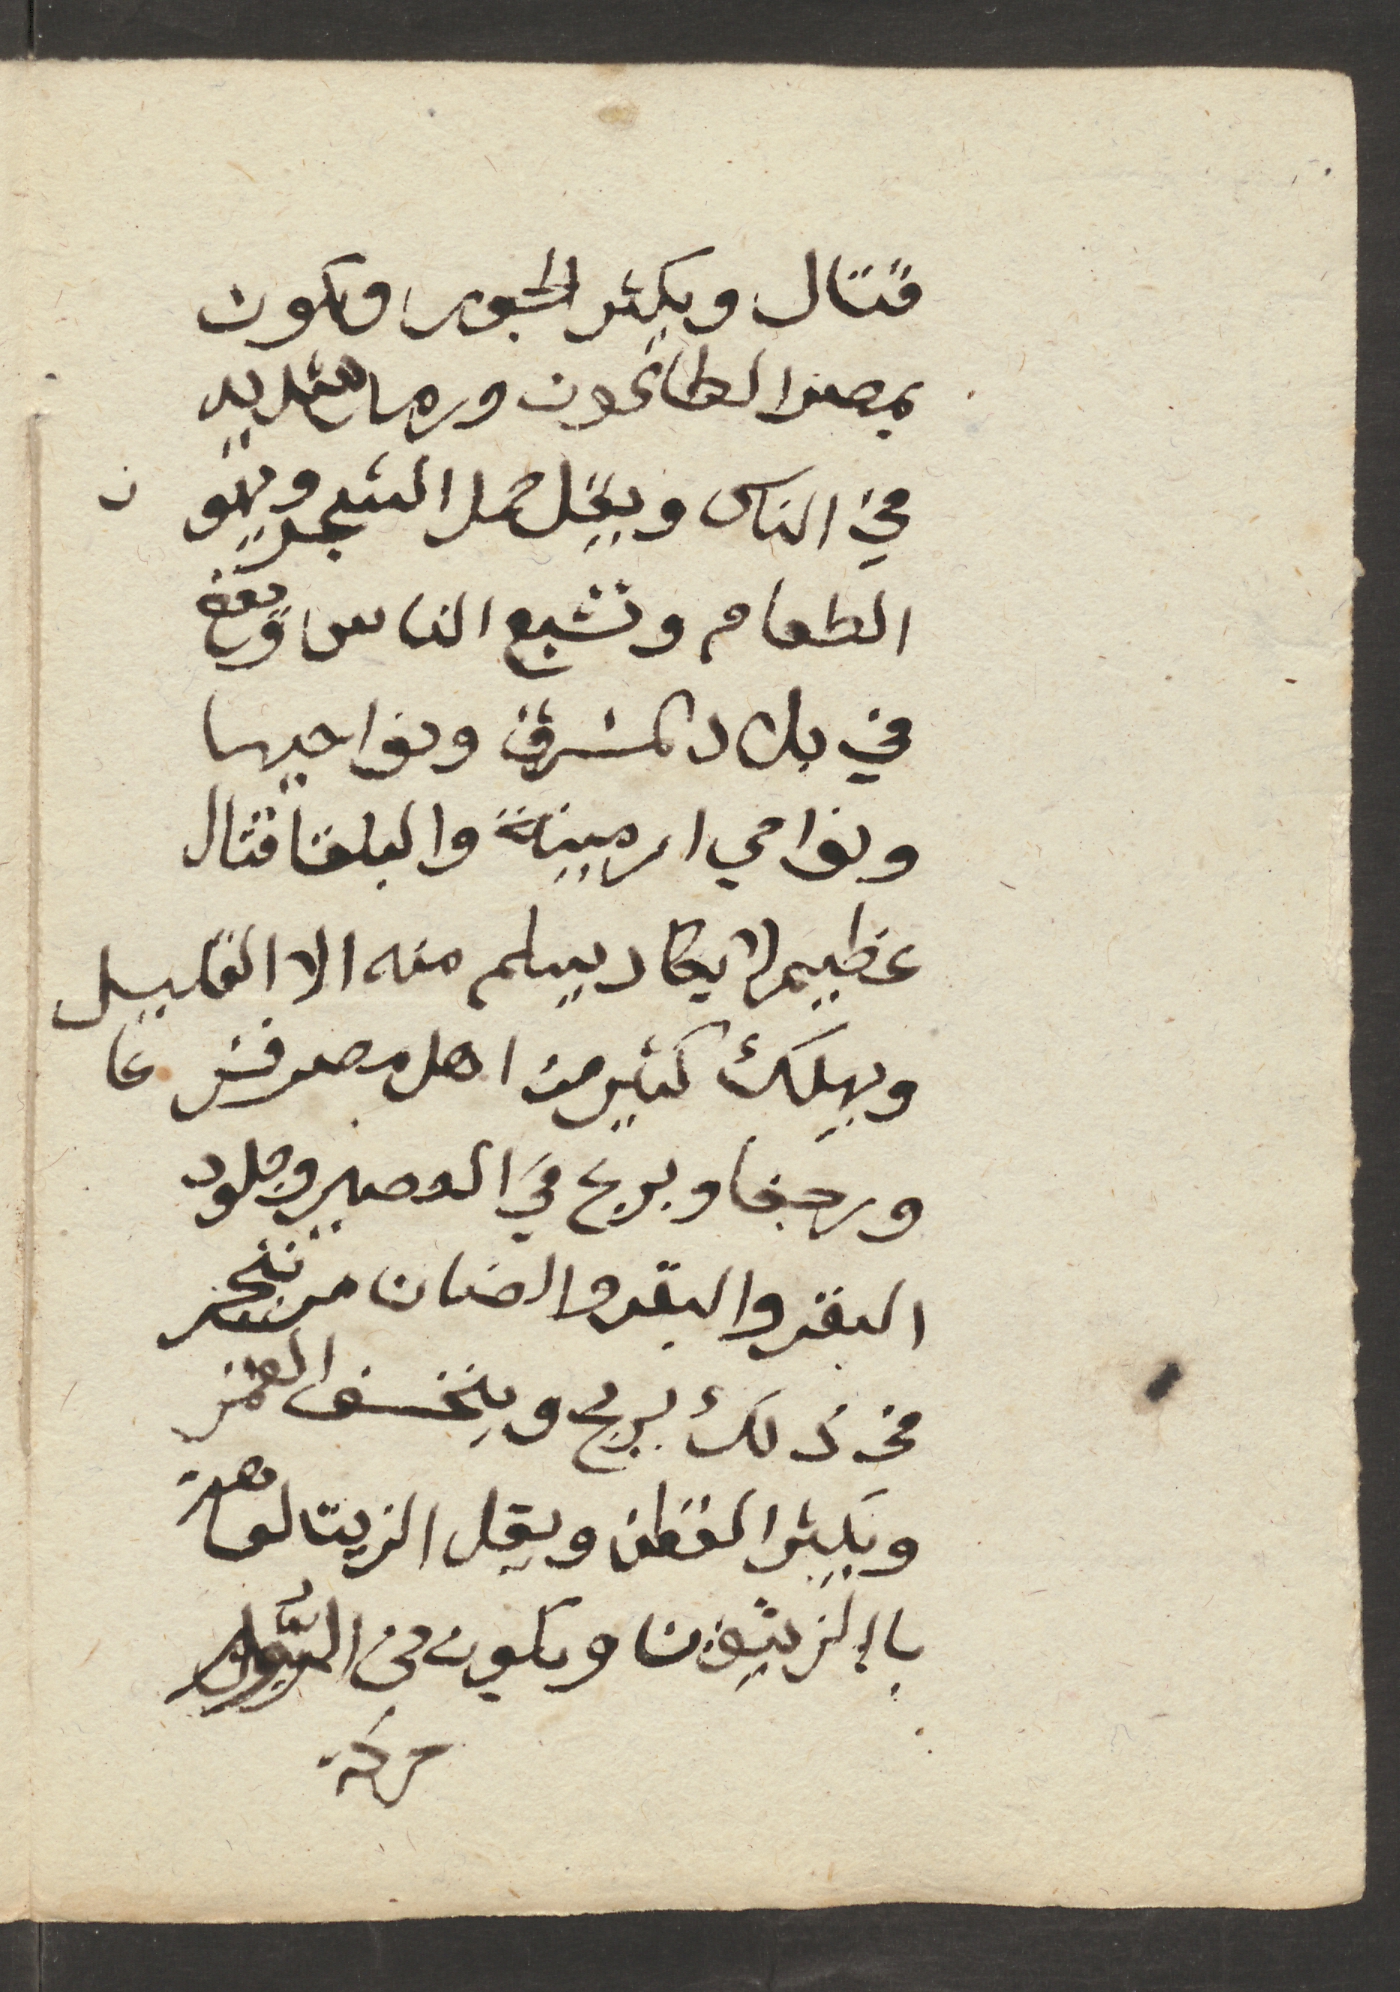 قتال ويكثر الجور ويكون
بمصر الطاعون ورماح شديد
في الناس ويقل حمل الشجر ويهو ن
الطعام وتشبع الناس ويقع
في بلاد المشرق ونواحيها
ونواحي ارمينة والبلقا قتال
عظيم لا يكاد يسلم منه الا القليل
ويهلك كثير من اهل مصر فزعا
ورجفا و يربح في العصير وجلود
البقر والبقر والضان من يتجر
في ذلك يربح وينخسف القمر
ويكثر القطن ويقل الزيت لعاهة
باالزيتون ويكون في
حركة